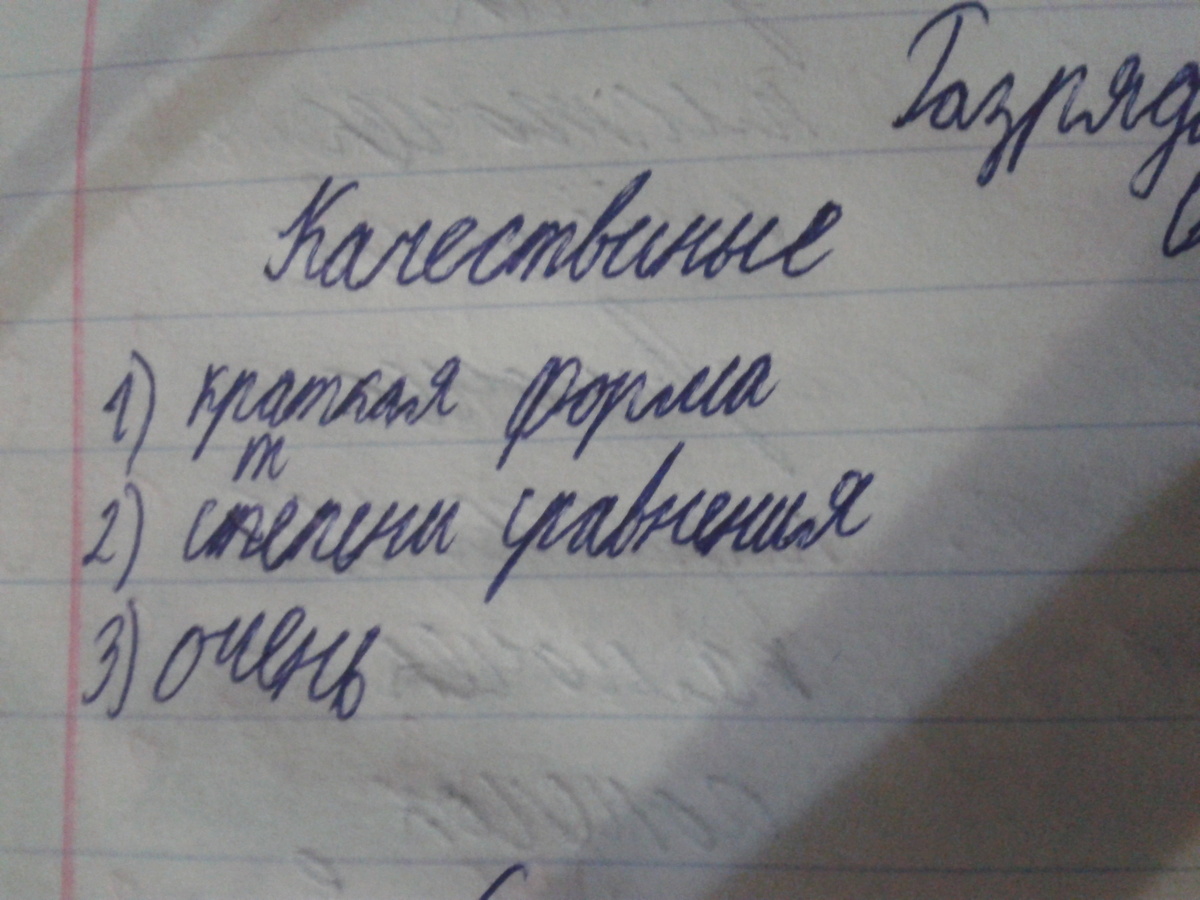 Разряд
Качествиные
1) краткая форма
т
2) степени сравнения
3) очень